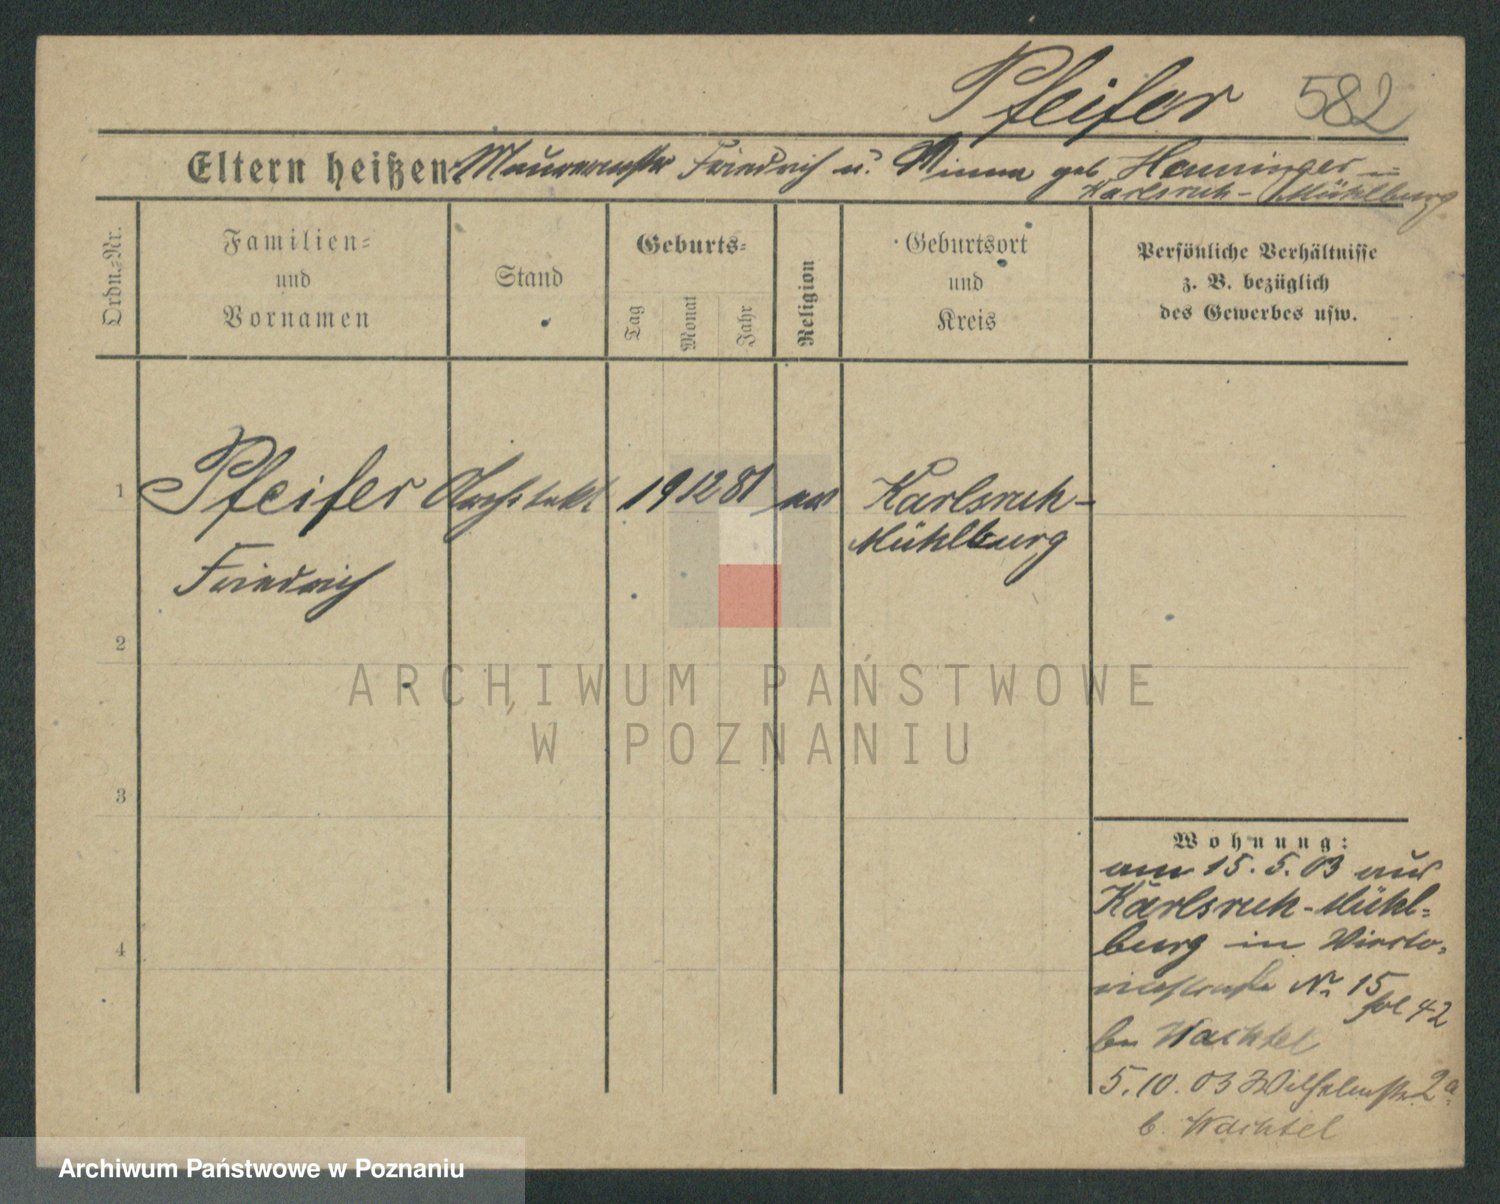 Pfeifer 582
Eltern heißen: Maurermstr Friedrich u. Minna geb Henninger in
Karlsruh-Mühlburg
Ordn.-Nr.
Familien-
und
Vornamen
Stand
Geburts-
Tag
Monat
Jahr
Religion
Geburtsort
und
Kreis
Persönliche Verhältnisse
z. B. bezüglich
des Gewerbes usw.
1 Pfeifer Architekt 19 12 81 Karlsruh-
Mühlburg
Friedrich
2
ARCHIWUM PAŃSTWOWE
W POZNANIU
3
4
Wohnung:
am 15. 5. 03 aus
Karlsruh-Mühl-
burg in
No 15
fol 42
bei Wachtel
5. 10. 03 Wilhelmstr. 2a
b. Wachtel
Archiwum Państwowe w Poznaniu